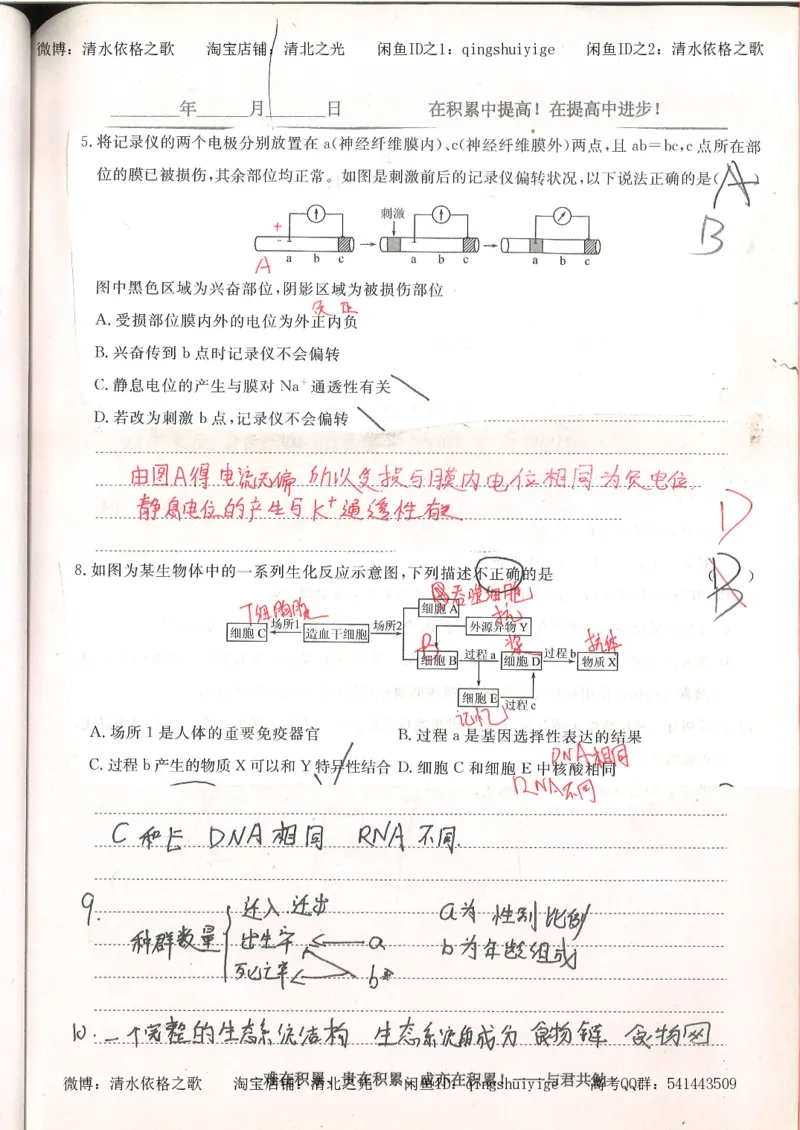 微博：清水依格之歌 淘宝店铺：清北之光 闲鱼ID之1：qingshuiyige 闲鱼ID之2：清水依格之歌
年 月 日 在积累中提高！在提高中进步！
5.将记录仪的两个电极分别放置在 a(神经纤维膜内)、c(神经纤维膜外)两点,且 ab＝bc,c 点所在部
位的膜已被损伤,其余部位均正常。如图是刺激前后的记录仪偏转状况,以下说法正确的是( A )
B
刺激
+
-
A a b c a b c a b c
图中黑色区域为兴奋部位,阴影区域为被损伤部位
负 正
A.受损部位膜内外的电位为外正内负
B.兴奋传到 b 点时记录仪不会偏转
C.静息电位的产生与膜对 Na⁺ 通透性有关
D.若改为刺激 b 点,记录仪不会偏转
由图A得 电流无偏 所以受损与膜内电位相同为负电位
静息电位的产生与K⁺通透性有关
D
8.如图为某生物体中的一系列生化反应示意图,下列描述不正确的是 ( B )
吞噬细胞
T细胞 细胞A 抗
细胞C 场所1 造血干细胞 场所2 外源异物Y
B 浆 抗体
细胞B 过程a 细胞D 过程b 物质X
细胞E 过程c
记忆
A.场所 1 是人体的重要免疫器官 B.过程 a 是基因选择性表达的结果
DNA相同
C.过程 b 产生的物质 X 可以和 Y 特异性结合 D.细胞 C 和细胞 E 中核酸相同
RNA不同
C和E DNA相同 RNA不同.
9.
种群数量 迁入 迁出 a为 性别比例
出生率 a b为年龄组成
死亡率 b
10. 一个完整的生态系统结构 生态系统组成成分 食物链 食物网
难在积累，贵在积累，成亦在积累！——与君共勉
微博：清水依格之歌 淘宝店铺：清北之光 闲鱼ID：qingshuiyige 高考QQ群：541443509